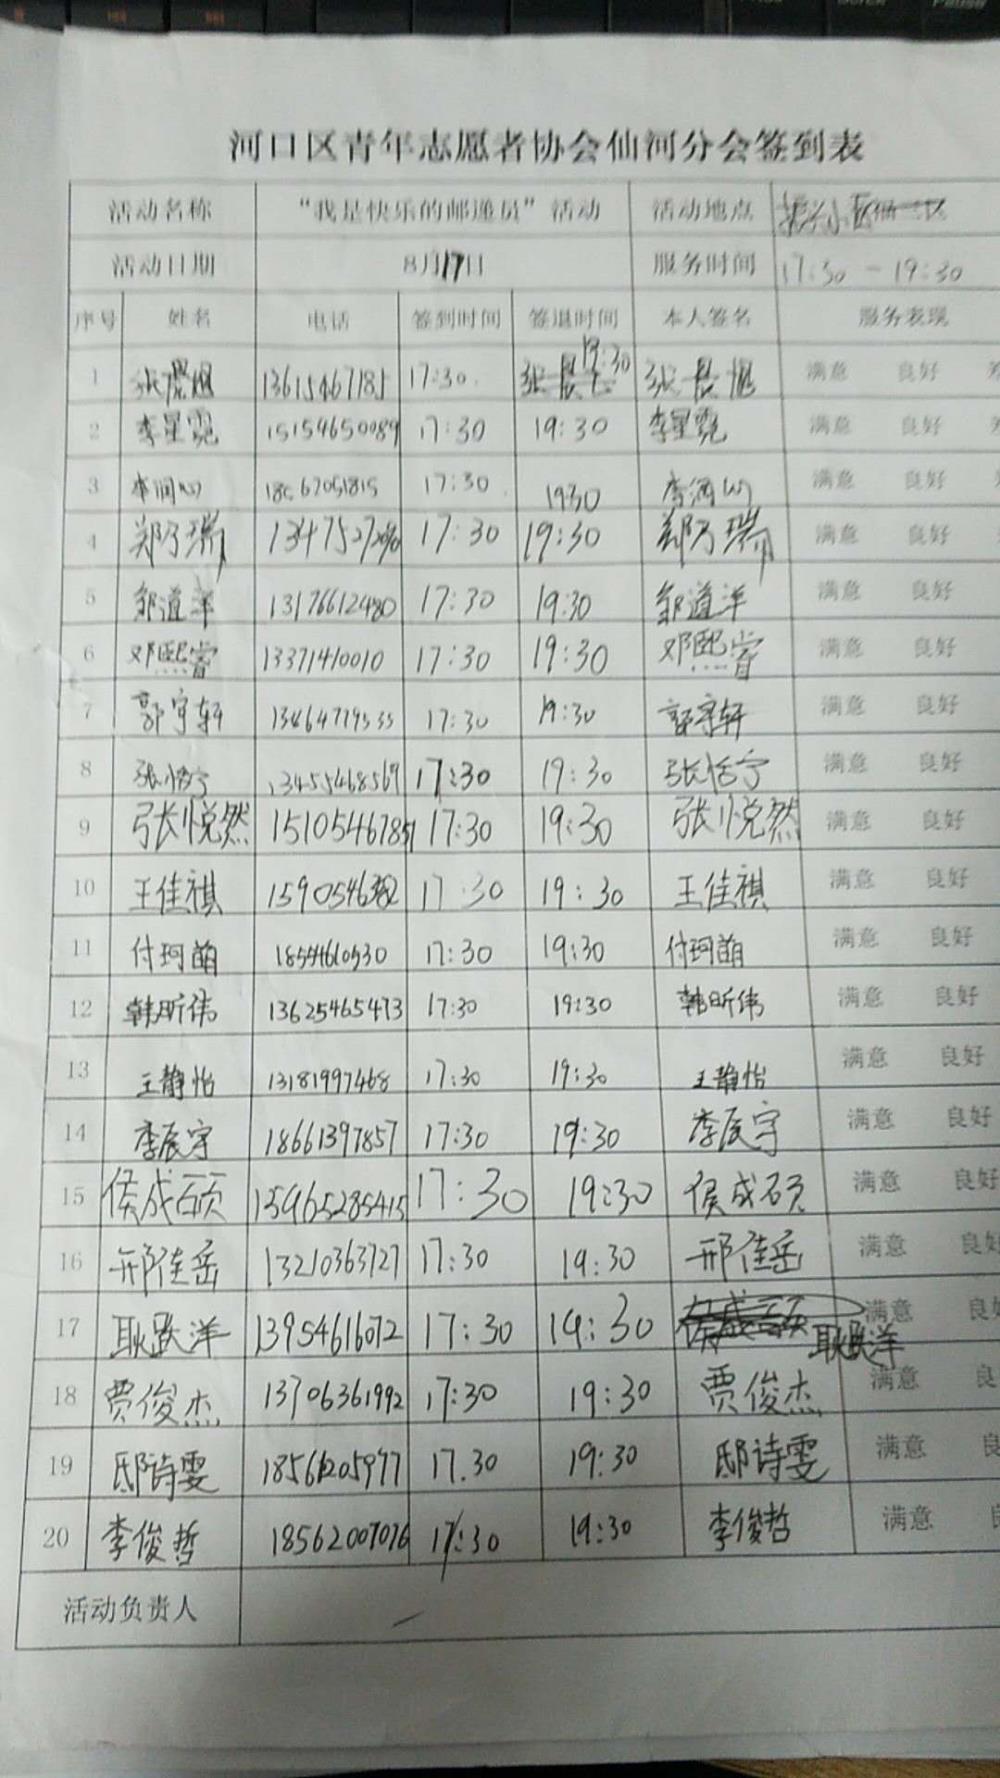 河口区青年志愿者协会仙河分会签到表
活动名称 “我是快乐的邮递员”活动 活动地点
活动日期 8月17日 服务时间 17:30-19:30
序号 姓名 电话 签到时间 签退时间 本人签名 服务表现
1 13615467185 17:30 19:30 张晨旭 满意 良好
2 李星霓 15154650089 17:30 19:30 李星霓 满意 良好
3 李润心 17:30 1930 李润心 满意 良好
4 郑乃瑞 17:30 19:30 郑乃瑞 满意 良好
5 邹道洋 13176612480 17:30 19:30 邹道洋 满意 良好
6 邓熙睿 13371410010 17:30 19:30 邓熙睿 满意 良好
7 郭宇轩 17:30 19:30 郭宇轩 满意 良好
8 张恬宁 13455468569 17:30 19:30 张恬宁 满意 良好
9 张悦然 17:30 19:30 张悦然 满意 良好
10 王佳祺 17:30 19:30 王佳祺 满意 良好
11 付珂萌 18554610530 17:30 19:30 付珂萌 满意 良好
12 韩昕伟 13625465473 17:30 19:30 韩昕伟 满意 良好
13 王静怡 13181997468 17:30 19:30 王静怡 满意 良好
14 李辰宇 18661397857 17:30 19:30 李辰宇 满意 良好
15 侯成硕 13965285415 17:30 19:30 侯成硕 满意 良好
16 邢佳岳 13210363727 17:30 19:30 邢佳岳 满意 良好
17 耿跃洋 13954616072 17:30 19:30 耿跃洋 满意 良
18 贾俊杰 13706361992 17:30 19:30 贾俊杰 满意 良
19 邸诗雯 18561205977 17.30 19:30 邸诗雯 满意 良
20 李俊哲 18562007076 17:30 19:30 李俊哲 满意
活动负责人